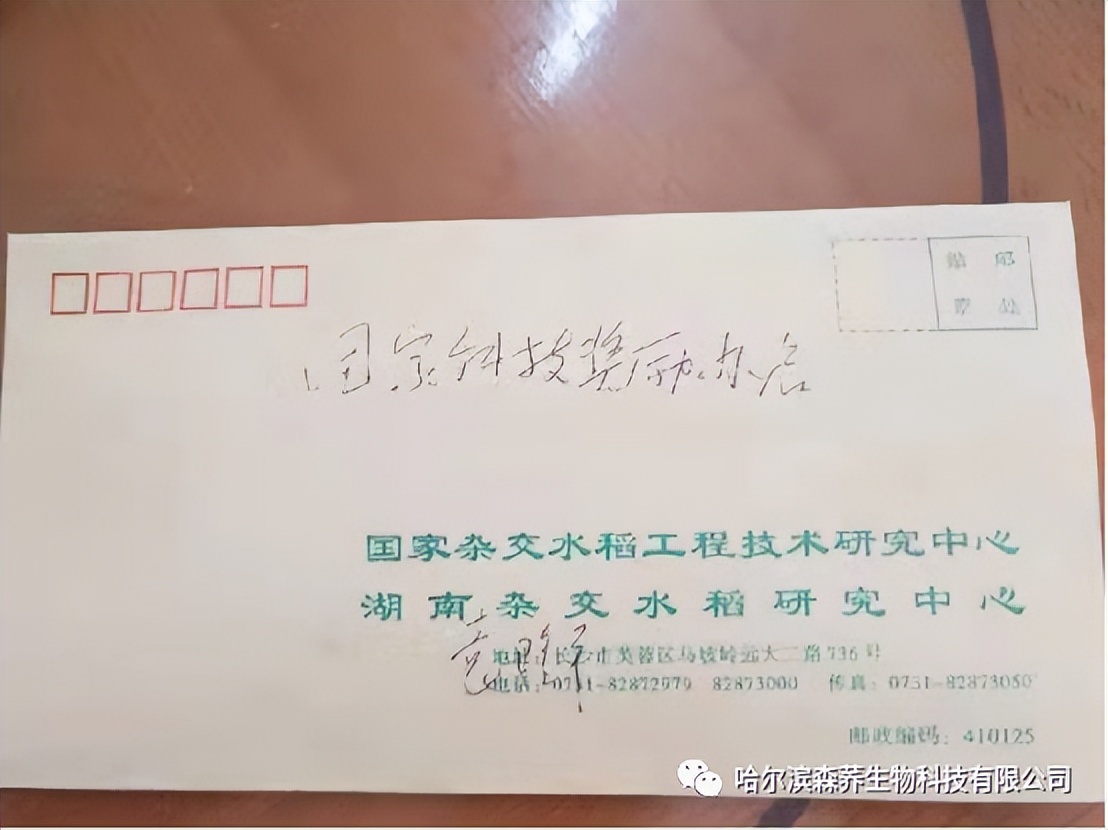 贴 邮
票 处
国家科技奖励办启
国家杂交水稻工程技术研究中心
湖南杂交水稻研究中心
袁隆平
地址：长沙市芙蓉区马坡岭远大二路736号
电话：0731-82872979 82873000 传真：0731-82873050
邮政编码：410125
哈尔滨森养生物科技有限公司